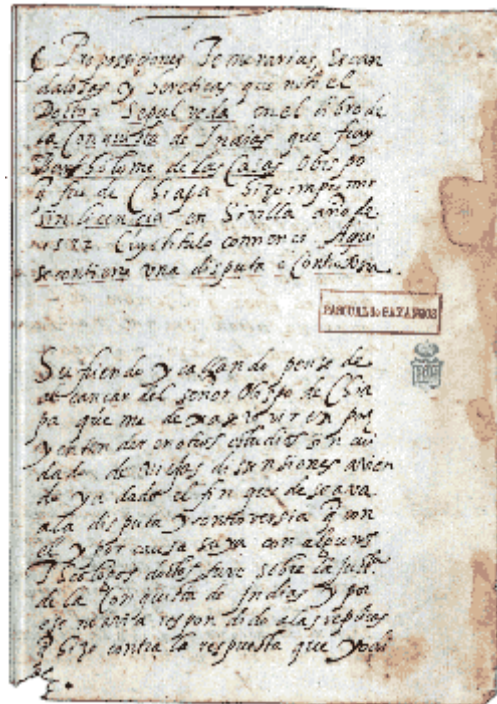 Proposiciones Temerarias, Escan
dalosas y hereticas que notó el
Doctor Sepulveda en el libro de
la Conquista de Indias que fray
Bartholome de las Casas Obispo
q̃ fue de Chiapa hizo imprimir
sin licencia en Sevilla año de
1552 Cuyo titulo comienza Aqui
se contiene una disputa e Controversia.
PASCUAL de GAYANGOS
Sufriendo y callando pense de
alcançar del señor Obispo de Chia
pa que me dexase vivir en paz
y entender en otros estudios sin cui
dado de viejas disensiones avien
do ya dado el fin que deseava
a la disputa y controversia q̃ con
el y por causa suya con algunos
Theologos doctos tuve sobre la just.ª
de la Conquista de Indias y por
eso no avia respondido a las replicas
q̃ hizo contra la respuesta que yo di